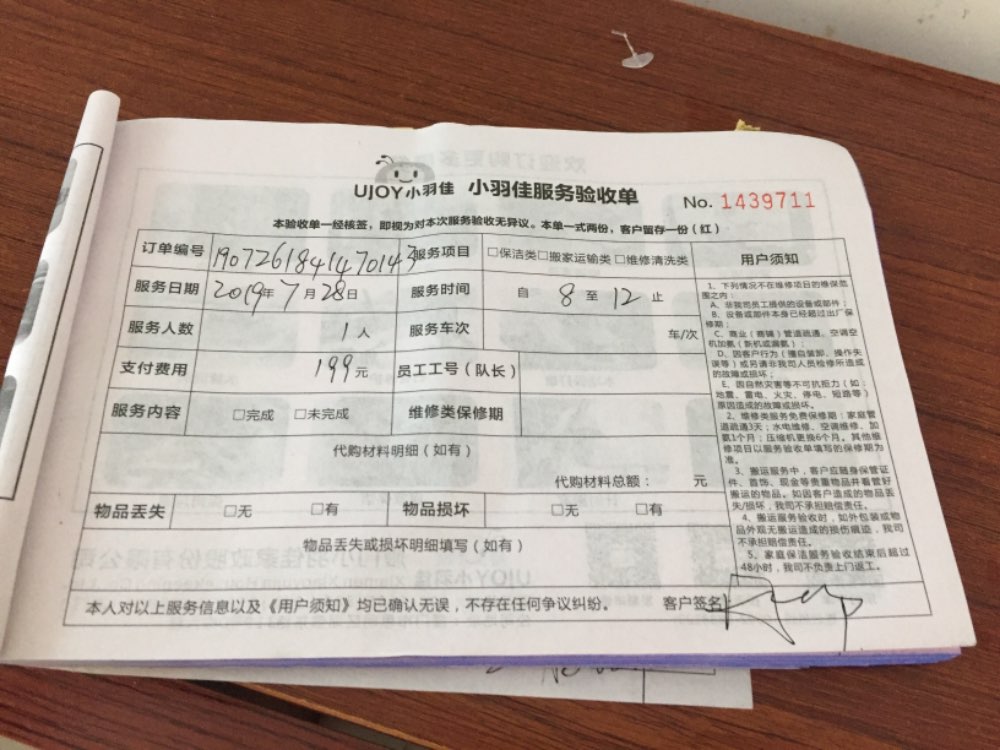 UJOY小羽佳 小羽佳服务验收单 No. 1439711
本验收单一经核签，即视为对本次服务验收无异议。本单一式两份，客户留存一份（红）
订单编号 1907261841470143 服务项目 □保洁类□搬家运输类 □维修清洗类
服务日期 2019年7月28日 服务时间 自 8 至 12 止
服务人数 1人 服务车次 车/次
支付费用 199元 员工工号（队长）
服务内容 □完成 □未完成 维修类保修期
代购材料明细（如有）
代购材料总额： 元
物品丢失 □无 □有 物品损坏 □无 □有
物品丢失或损坏明细填写（如有）
用户须知
1、下列情况不在维修项目的维保范
围之内：
A、非我司员工提供的设备或部件；
B、设备或部件本身已经超过出厂保
修期；
C、商业（商铺）管道疏通、空调空
机加氨（新机或漏氨）；
D、因客户行为（擅自装卸、操作失
误等）或另请非我司人员检修所造成
的故障或损坏；
E、因自然灾害等不可抗拒力（如：
地震、雷电、火灾、停电、短路等）
原因造成的故障或损坏。
2、维修类服务免费保修期：家庭管
道疏通3天；水电维修、空调维修、加
氨1个月；压缩机更换6个月。其他维
修项目以服务验收单填写的保修期为
准。
3、搬运服务中，客户应随身保管证
件、首饰、现金等贵重物品并看管好
搬运的物品。如因客户造成的物品丢
失/损坏，我司不承担赔偿责任。
4、搬运服务验收时，如外包装或物
品外观无搬运造成的损伤痕迹，我司
不承担赔偿责任。
5、家庭保洁服务验收结束后超过
48小时，我司不负责上门返工。
本人对以上服务信息以及《用户须知》均已确认无误，不存在任何争议纠纷。 客户签名